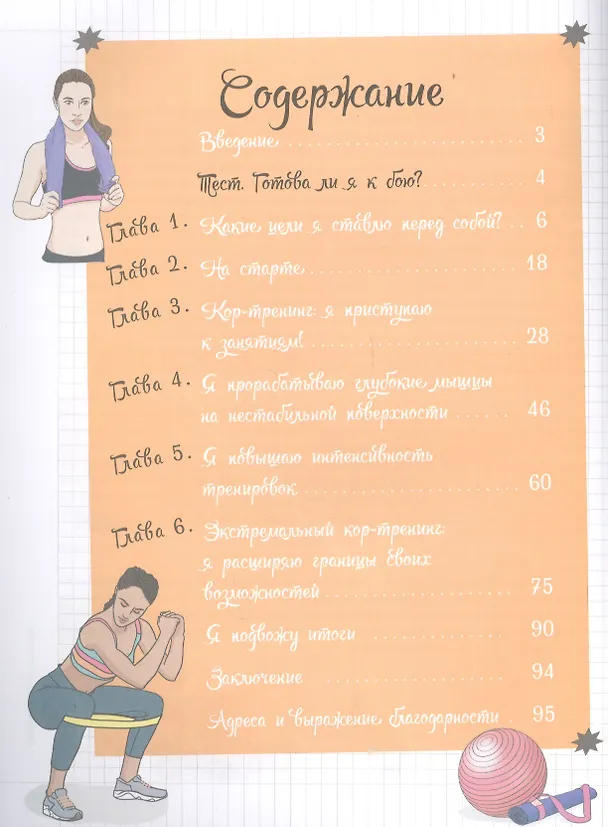 Содержание
Введение ........................ 3
Тест. Готова ли я к бою? ............ 4
Глава 1. Какие цели я ставлю перед собой? .. 6
Глава 2. На старте ..................... 18
Глава 3. Кор-тренинг: я приступаю
к занятиям! ..................... 28
Глава 4. Я прорабатываю глубокие мышцы
на нестабильной поверхности ...... 46
Глава 5. Я повышаю интенсивность
тренировок ...................... 60
Глава 6. Экстремальный кор-тренинг:
я расширяю границы своих
возможностей .................... 75
Я подвожу итоги .............. 90
Заключение .................. 94
Адреса и выражение благодарности . 95